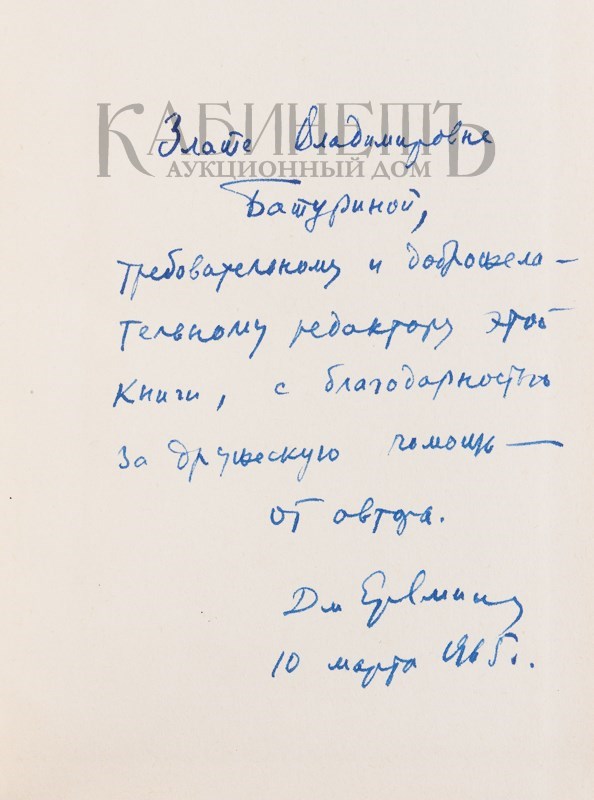 КАБИНЕТЪ
АУКЦИОННЫЙ ДОМ
Злате Владимировне
Батуриной,
требовательному и доброжела-
тельному редактору этой
книги, с благодарностью
за дружескую помощь —
от автора.
Дм Еремин
10 марта 1965 г.